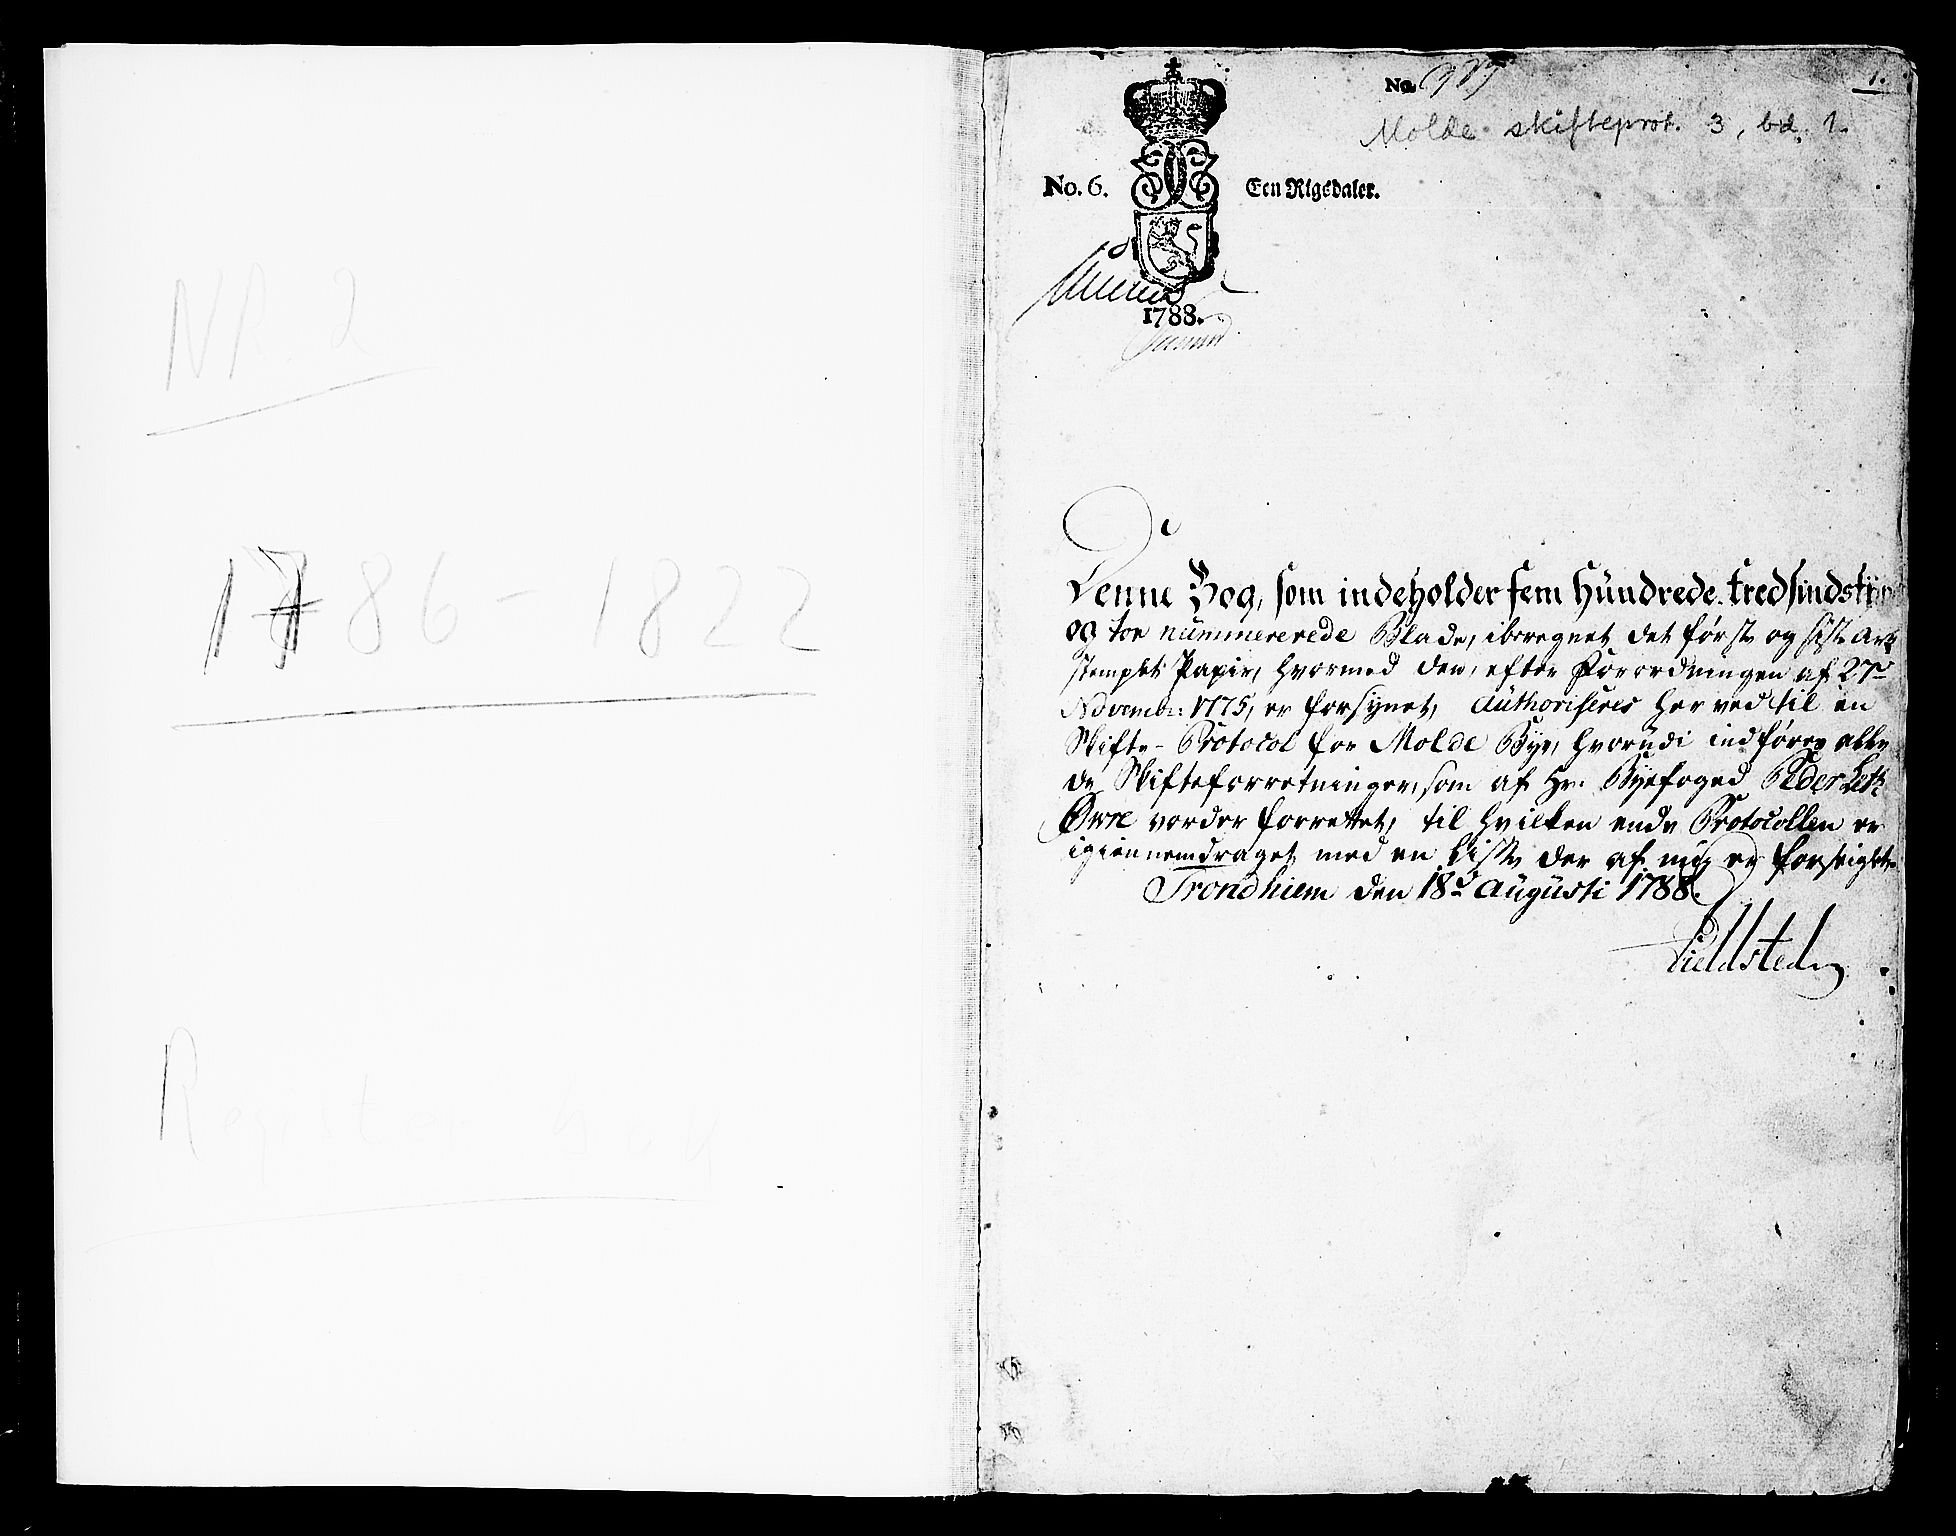 NR. 2
1786 - 1822
Register bog
No.
1.
Molde skifteprot. 3, bd. 1.
No. 6.
Een Rigsdaler.
1788.
Denne Bog, som indeholder fem Hundrede tredsindstÿve
og toe nummererede Blade, iberegnet det første og siste Ark
stemplet Papir, hvormed den, efter Forordningen af 27de
Novembr: 1775, er forsynet, authoriseres herved til en
Skifte-Protocol for Molde Bye, hvorudi indføres alle
de Skifteforretninger, som af Hr. Byefoged Peder Leth
Øwre vorder forrettet, til hvilken ende Protocollen er
igiennemdraget med en Liste der af mig er forseiglet.
Trondhiem den 18d Augusti 1788.